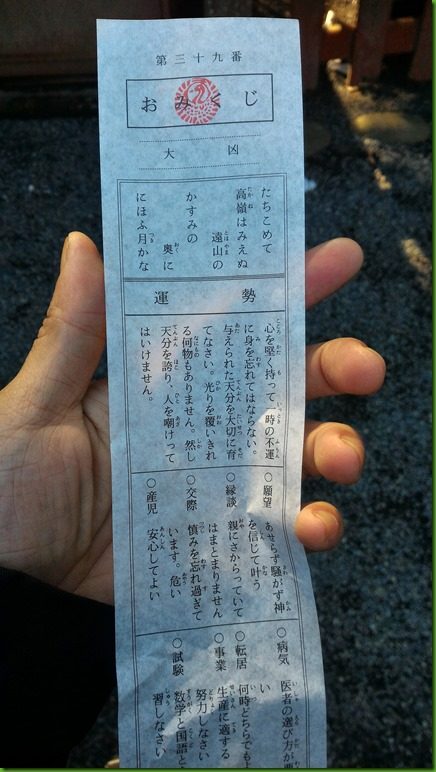 第三十九番
おみくじ
大 凶
たちこめて
高嶺はみえぬ
遠山の
かすみの
奥に
にほふ月かな
運 勢
心を堅く持って一時の不運
に身を忘れてはならない。
与えられた天分を大切に育
てなさい。光りを覆いきれ
る何物もありません。然し
天分を誇り、人を嘲けって
はいけません。
○願望 あせらず騒がず神
を信じて叶う
○縁談 親にさからっていて
はまとまりません
○交際 慎みを忘れ過ぎて
います。危い
○産児 安心してよい
○病気 医者の選び方が
い
○転居 何時どちらでも
○事業 生産に適する
努力しなさい
○試験 数学と国語と
習しなさい